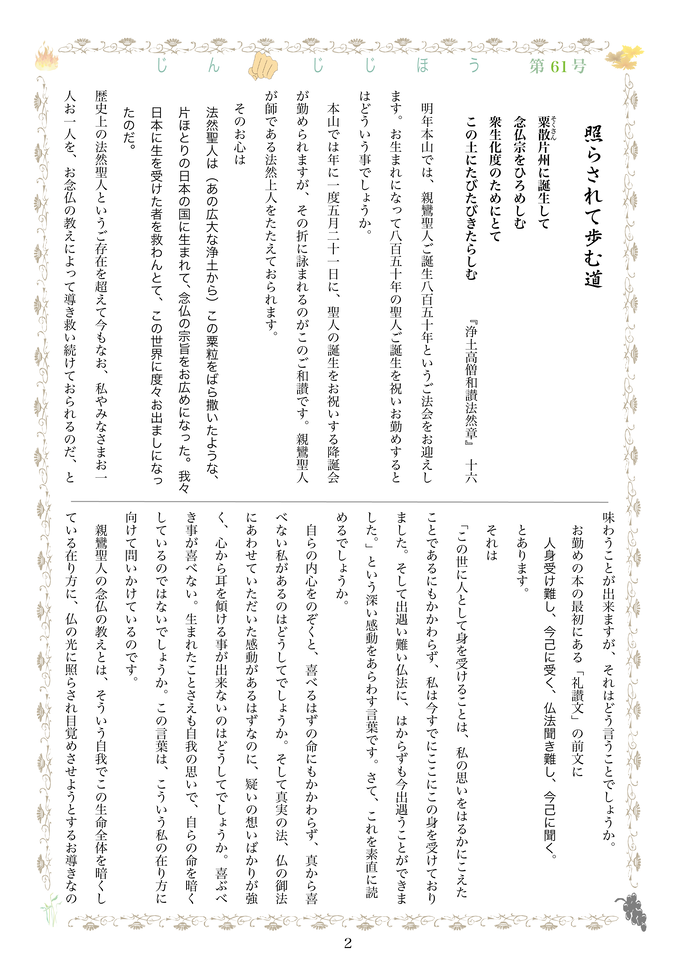 じんじじほう 第61号
照らされて歩む道
粟散片州に誕生して
ぞくさん
念仏宗をひろめしむ
衆生化度のためにとて
この土にたびたびきたらしむ
『浄土高僧和讃法然章』 十六
明年本山では、親鸞聖人ご誕生八百五十年というご法会をお迎えし
ます。お生まれになって八百五十年の聖人ご誕生を祝いお勤めすると
はどういう事でしょうか。
本山では年に一度五月二十一日に、聖人の誕生をお祝いする降誕会
が勤められますが、その折に詠まれるのがこのご和讃です。親鸞聖人
が師である法然上人をたたえておられます。
そのお心は
法然聖人は（あの広大な浄土から）この粟粒をばら撒いたような、
片ほとりの日本の国に生まれて、念仏の宗旨をお広めになった。我々
日本に生を受けた者を救わんとて、この世界に度々お出ましになっ
たのだ。
歴史上の法然聖人というご存在を超えて今もなお、私やみなさまお一
人お一人を、お念仏の教えによって導き救い続けておられるのだ、と
味わうことが出来ますが、それはどう言うことでしょうか。
お勤めの本の最初にある「礼讃文」の前文に
人身受け難し、今己に受く、仏法聞き難し、今己に聞く。
とあります。
それは
「この世に人として身を受けることは、私の思いをはるかにこえた
ことであるにもかかわらず、私は今すでにここにこの身を受けており
ました。そして出遇い難い仏法に、はからずも今出遇うことができま
した。」という深い感動をあらわす言葉です。さて、これを素直に読
めるでしょうか。
自らの内心をのぞくと、喜べるはずの命にもかかわらず、真から喜
べない私があるのはどうしてでしょうか。そして真実の法、仏の御法
にあわせていただいた感動があるはずなのに、疑いの想いばかりが強
く、心から耳を傾ける事が出来ないのはどうしてでしょうか。喜ぶべ
き事が喜べない。生まれたことさえも自我の思いで、自らの命を暗く
しているのではないでしょうか。この言葉は、こういう私の在り方に
向けて問いかけているのです。
親鸞聖人の念仏の教えとは、そういう自我でこの生命全体を暗くし
ている在り方に、仏の光に照らされ目覚めさせようとするお導きなの
2